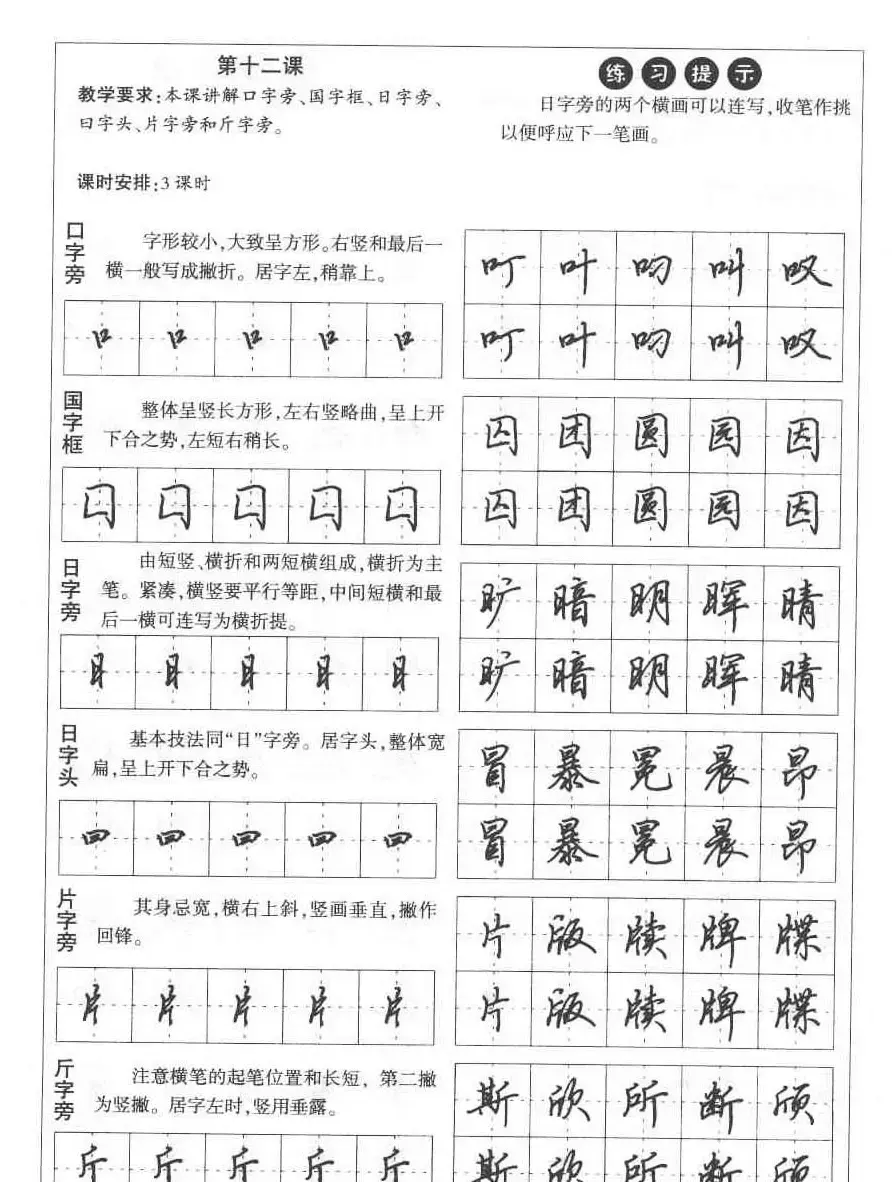 第十二课
教学要求:本课讲解口字旁、国字框、日字旁、
曰字头、片字旁和斤字旁。
课时安排:3课时
练习提示
日字旁的两个横画可以连写,收笔作挑
以便呼应下一笔画。
口字旁
字形较小,大致呈方形。右竖和最后一
横一般写成撇折。居字左,稍靠上。
口 口 口 口 口
叮 叶 吻 叫 叹
叮 叶 吻 叫 叹
国字框
整体呈竖长方形,左右竖略曲,呈上开
下合之势,左短右稍长。
囗 囗 囗 囗 囗
囚 团 圆 园 因
囚 团 圆 园 因
日字旁
由短竖、横折和两短横组成,横折为主
笔。紧凑,横竖要平行等距,中间短横和最
后一横可连写为横折提。
日 日 日 日 日
旷 暗 明 晖 晴
旷 暗 明 晖 晴
日字头
基本技法同“日”字旁。居字头,整体宽
扁,呈上开下合之势。
曰 曰 曰 曰 曰
冒 暴 冕 晨 昂
冒 暴 冕 晨 昂
片字旁
其身忌宽,横右上斜,竖画垂直,撇作
回锋。
片 片 片 片 片
片 版 牍 牌 牒
片 版 牍 牌 牒
斤字旁
注意横笔的起笔位置和长短,第二撇
为竖撇。居字左时,竖用垂露。
斤 斤 斤 斤 斤
斯 欣 所 断 颀
斯 欣 所 断 颀